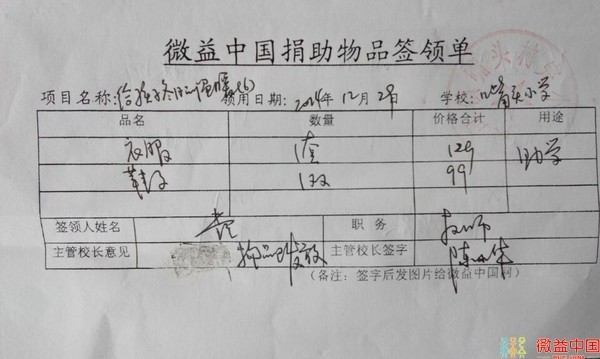 微益中国捐助物品签领单
项目名称:给孩子冬的温暖(6) 领用日期:2014年12月29日 学校:嘴头小学
品名 数量 价格合计 用途
衣服 1套 129 助学
1双 99
签领人姓名 职务 教师
主管校长意见 物品已发放 主管校长签字 陈
(备注:签字后发图片给微益中国网)
微益中国